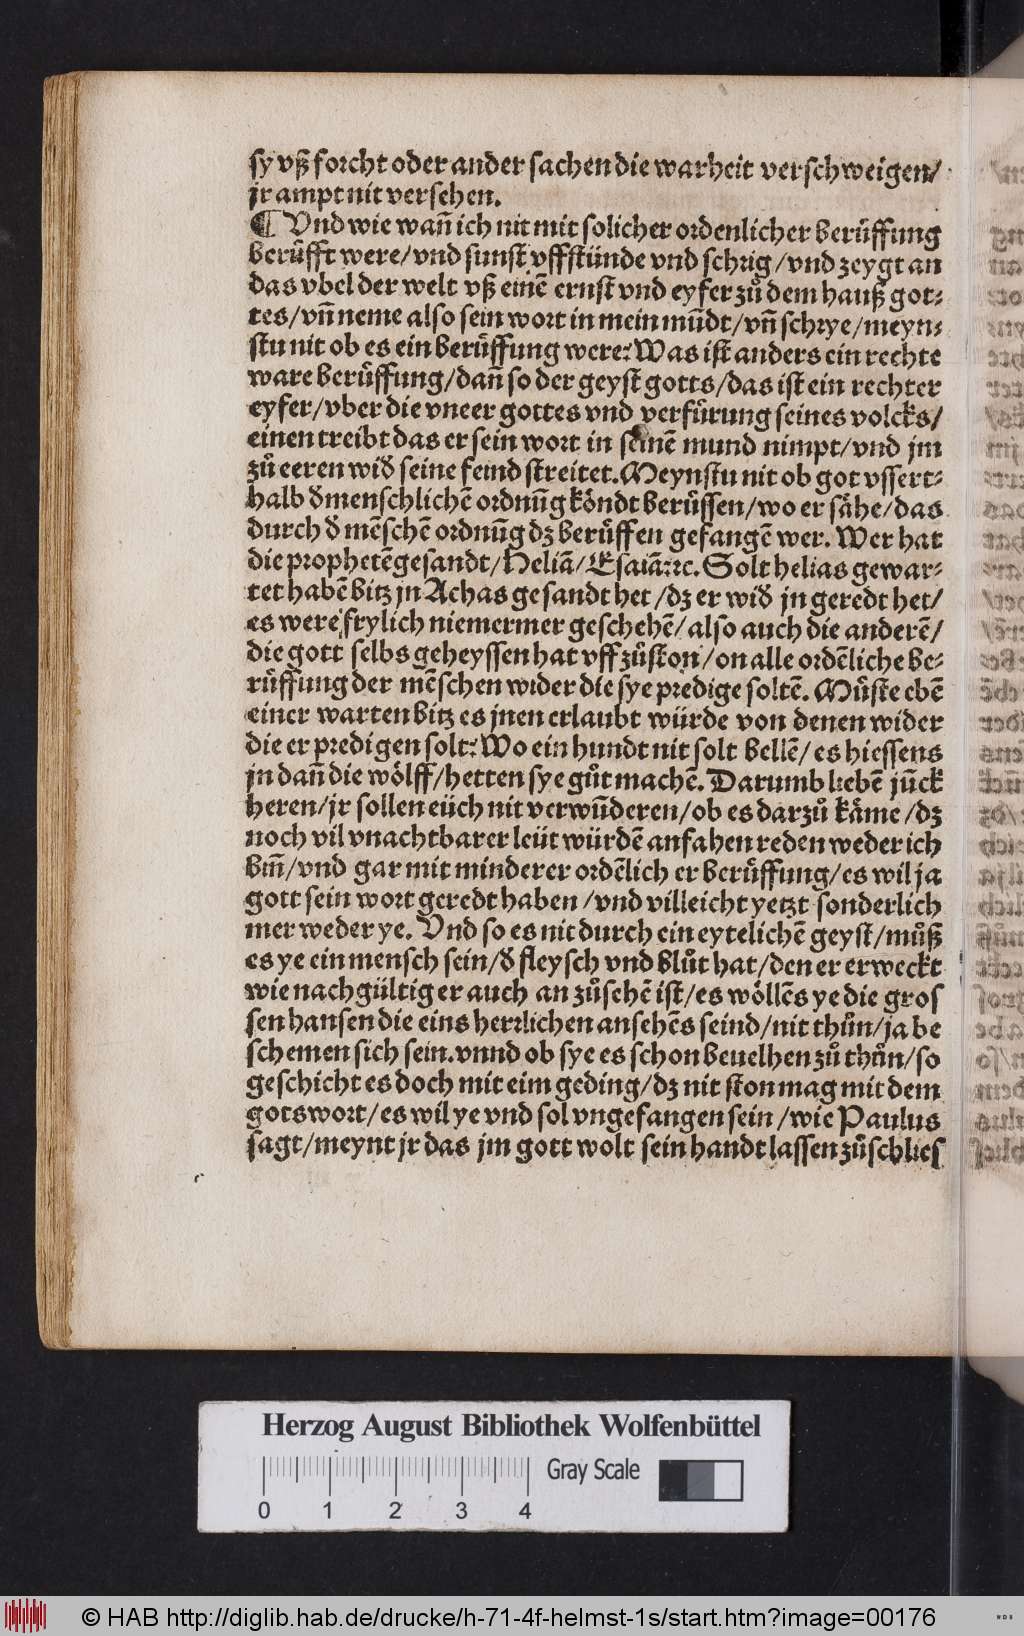 sy vß forcht oder ander sachen die warheit verschweigen/
jr ampt nit versehen.
¶ Vnd wie wañ ich nit mit solicher ordenlicher berůffung
berůfft were/vnd sunst vffstünde vnd schrig/vnd zeygt an
das vbel der welt vß einẽ ernst vnd eyfer zů dem hauß got⸗
tes/vñ neme also sein wort in mein mũdt/vñ schrye/meyn⸗
stu nit ob es ein berůffung were? Was ist anders ein rechte
ware berůffung/dañ so der geyst gotts/das ist ein rechter
eyfer/vber die vneer gottes vnd verfůrung seines volcks/
einen treibt das er sein wort in seinẽ mund nimpt/vnd jm
zů eeren wiđ seine feind streitet. Meynstu nit ob got vssert⸗
halb đ menschlichẽ ordnũg köndt berůffen/wo er sähe/das
durch đ mẽschẽ ordnũg dz berůffen gefangẽ wer. Wer hat
die prophetẽ gesandt/Heliã/Esaiã ꝛc. Solt helias gewar⸗
tet habẽ bitz jn Achas gesandt het/dz er wiđ jn geredt het/
es were frylich niemermer geschehẽ/also auch die anderẽ/
die gott selbs geheyssen hat vff zůston/on alle ordẽliche be⸗
růffung der mẽschen wider die sye predige soltẽ. Můste ebẽ
einer warten bitz es jnen erlaubt würde von denen wider
die er predigen solt? Wo ein hundt nit solt bellẽ/es hiessens
jn dañ die wölff/hetten sye gůt machẽ. Darumb liebẽ jũck
heren/jr sollen eüch nit verwũderen/ob es darzů käme/dz
noch vil vnachtbarer leüt würdẽ anfahen reden weder ich
bin̄/vnd gar mit minderer ordẽlich er berůffung/es wil ja
gott sein wort geredt haben/vnd villeicht yetzt sonderlich
mer weder ye. Vnd so es nit durch ein eytelichẽ geyst/můß
es ye ein mensch sein/đ fleysch vnd blůt hat/den er erweckt
wie nachgültig er auch an zůsehẽ ist/es wöllẽs ye die gros
sen hansen die eins herrlichen ansehẽs seind/nit thůn/ja be
schemen sich sein. vnnd ob sye es schon beuelhen zů thůn/so
geschicht es doch mit eim geding/dz nit ston mag mit dem
gotswort/es wil ye vnd sol vngefangen sein/wie Paulus
sagt/meynt jr das jm gott wolt sein handt lassen zůschlies
Herzog August Bibliothek Wolfenbüttel
0 1 2 3 4
Gray Scale
© HAB http://diglib.hab.de/drucke/h-71-4f-helmst-1s/start.htm?image=00176